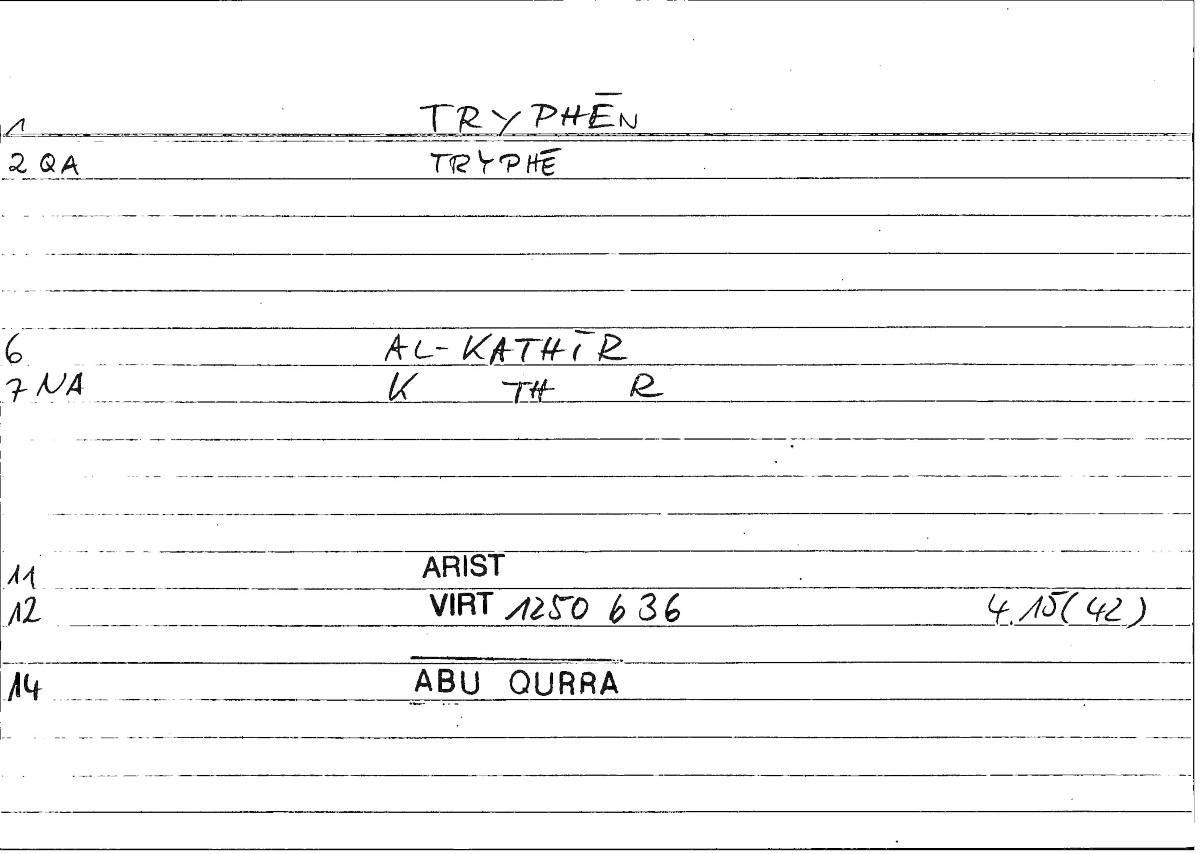 1 TRYPHĒN
2 QA TRYPHĒ
6 AL-KATHĪR
7 NA K TH R
11 ARIST
12 VIRT 1250 b 36 4.15(42)
14 ABU QURRA